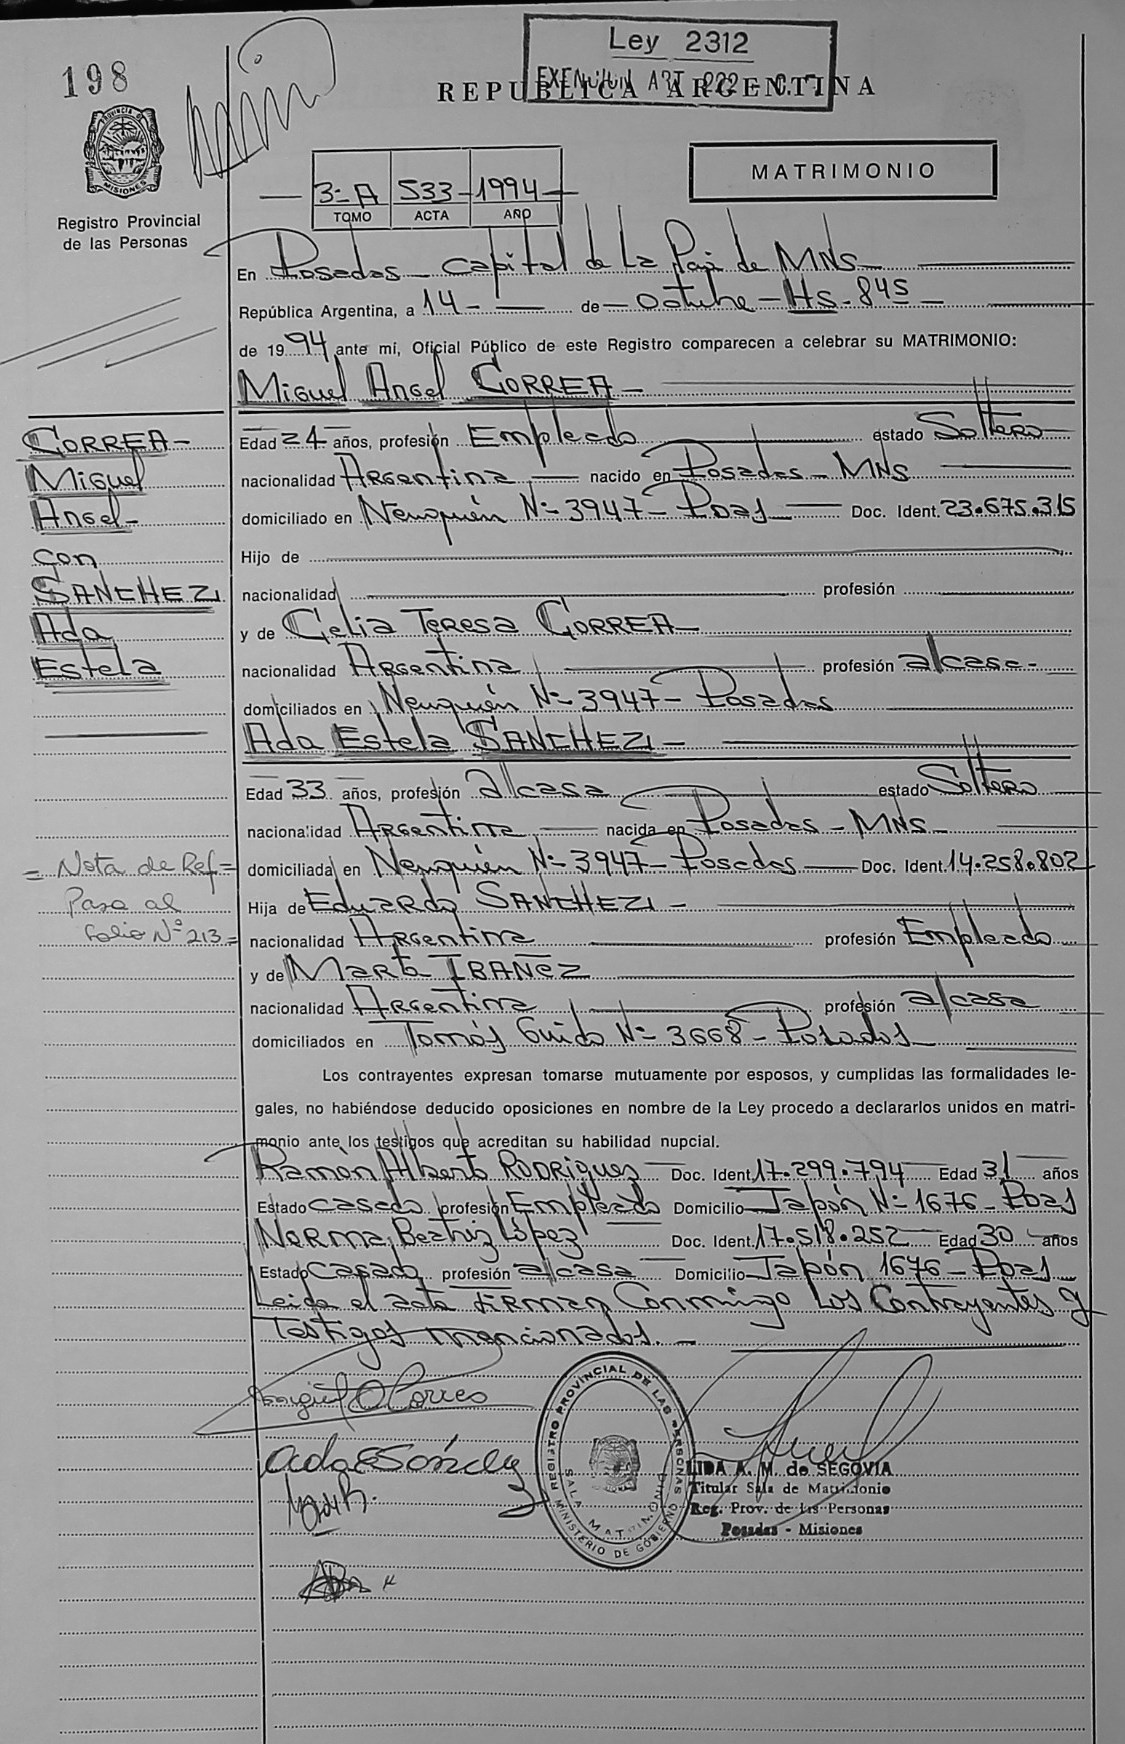 Ley 2312
198
REPUBLICA ARGENTINA
PROVINCIA DE
MISIONES
MATRIMONIO
3-A 533-1994-
TOMO ACTA AÑO
Registro Provincial
de las Personas
En Posadas - Capital de La de MNS -
República Argentina, a 14 - de - Octubre - Hs - 845 -
de 1994 ante mí, Oficial Público de este Registro comparecen a celebrar su MATRIMONIO:
Miguel Angel CORREA -
CORREA -
Miguel
Angel -
con
SANCHEZ
Ada
Estela
Edad 24 años, profesión Empleado estado Soltero
nacionalidad Argentina nacido en Posadas - MNS
domiciliado en Neuquén Nº 3947 - Pdas Doc. Ident. 23.675.315
Hijo de
nacionalidad profesión
y de Celia Teresa CORREA -
nacionalidad Argentina profesión al casa -
domiciliados en Neuquén Nº 3947 - Posadas
Ada Estela SANCHEZ -
Edad 33 años, profesión al casa estado Soltero
nacionalidad Argentina nacida en Posadas - MNS -
domiciliada en Neuquén Nº 3947 - Posadas Doc. Ident. 14.258.802
= Nota de Ref =
Pasa al
folio Nº 213 =
Hija de Eduardo SANCHEZ -
nacionalidad Argentina profesión Empleado
y de Marta IBAÑEZ
nacionalidad Argentina profesión al casa
domiciliados en Tomás Guido Nº 3668 - Posadas
Los contrayentes expresan tomarse mutuamente por esposos, y cumplidas las formalidades le-
gales, no habiéndose deducido oposiciones en nombre de la Ley procedo a declararlos unidos en matri-
monio ante los testigos que acreditan su habilidad nupcial.
Ramón Alberto RODRIGUES Doc. Ident. 17.299.794 Edad 31 años
Estado casado profesión Empleado Domicilio Japón Nº 1676 - Pdas
Norma Beatriz López Doc. Ident. 17.518.252 Edad 30 años
Estado casada profesión al casa Domicilio Japón 1676 - Pdas
Leida el acta firman conmigo los contrayentes y
testigos mencionados. -
REGISTRO PROVINCIAL DE LAS PERSONAS
SALA MATRIMONIO
MINISTERIO DE GOBIERNO
LIDA A. M. de SEGOVIA
Titular Sala de Matrimonio
Reg. Prov. de las Personas
Posadas - Misiones